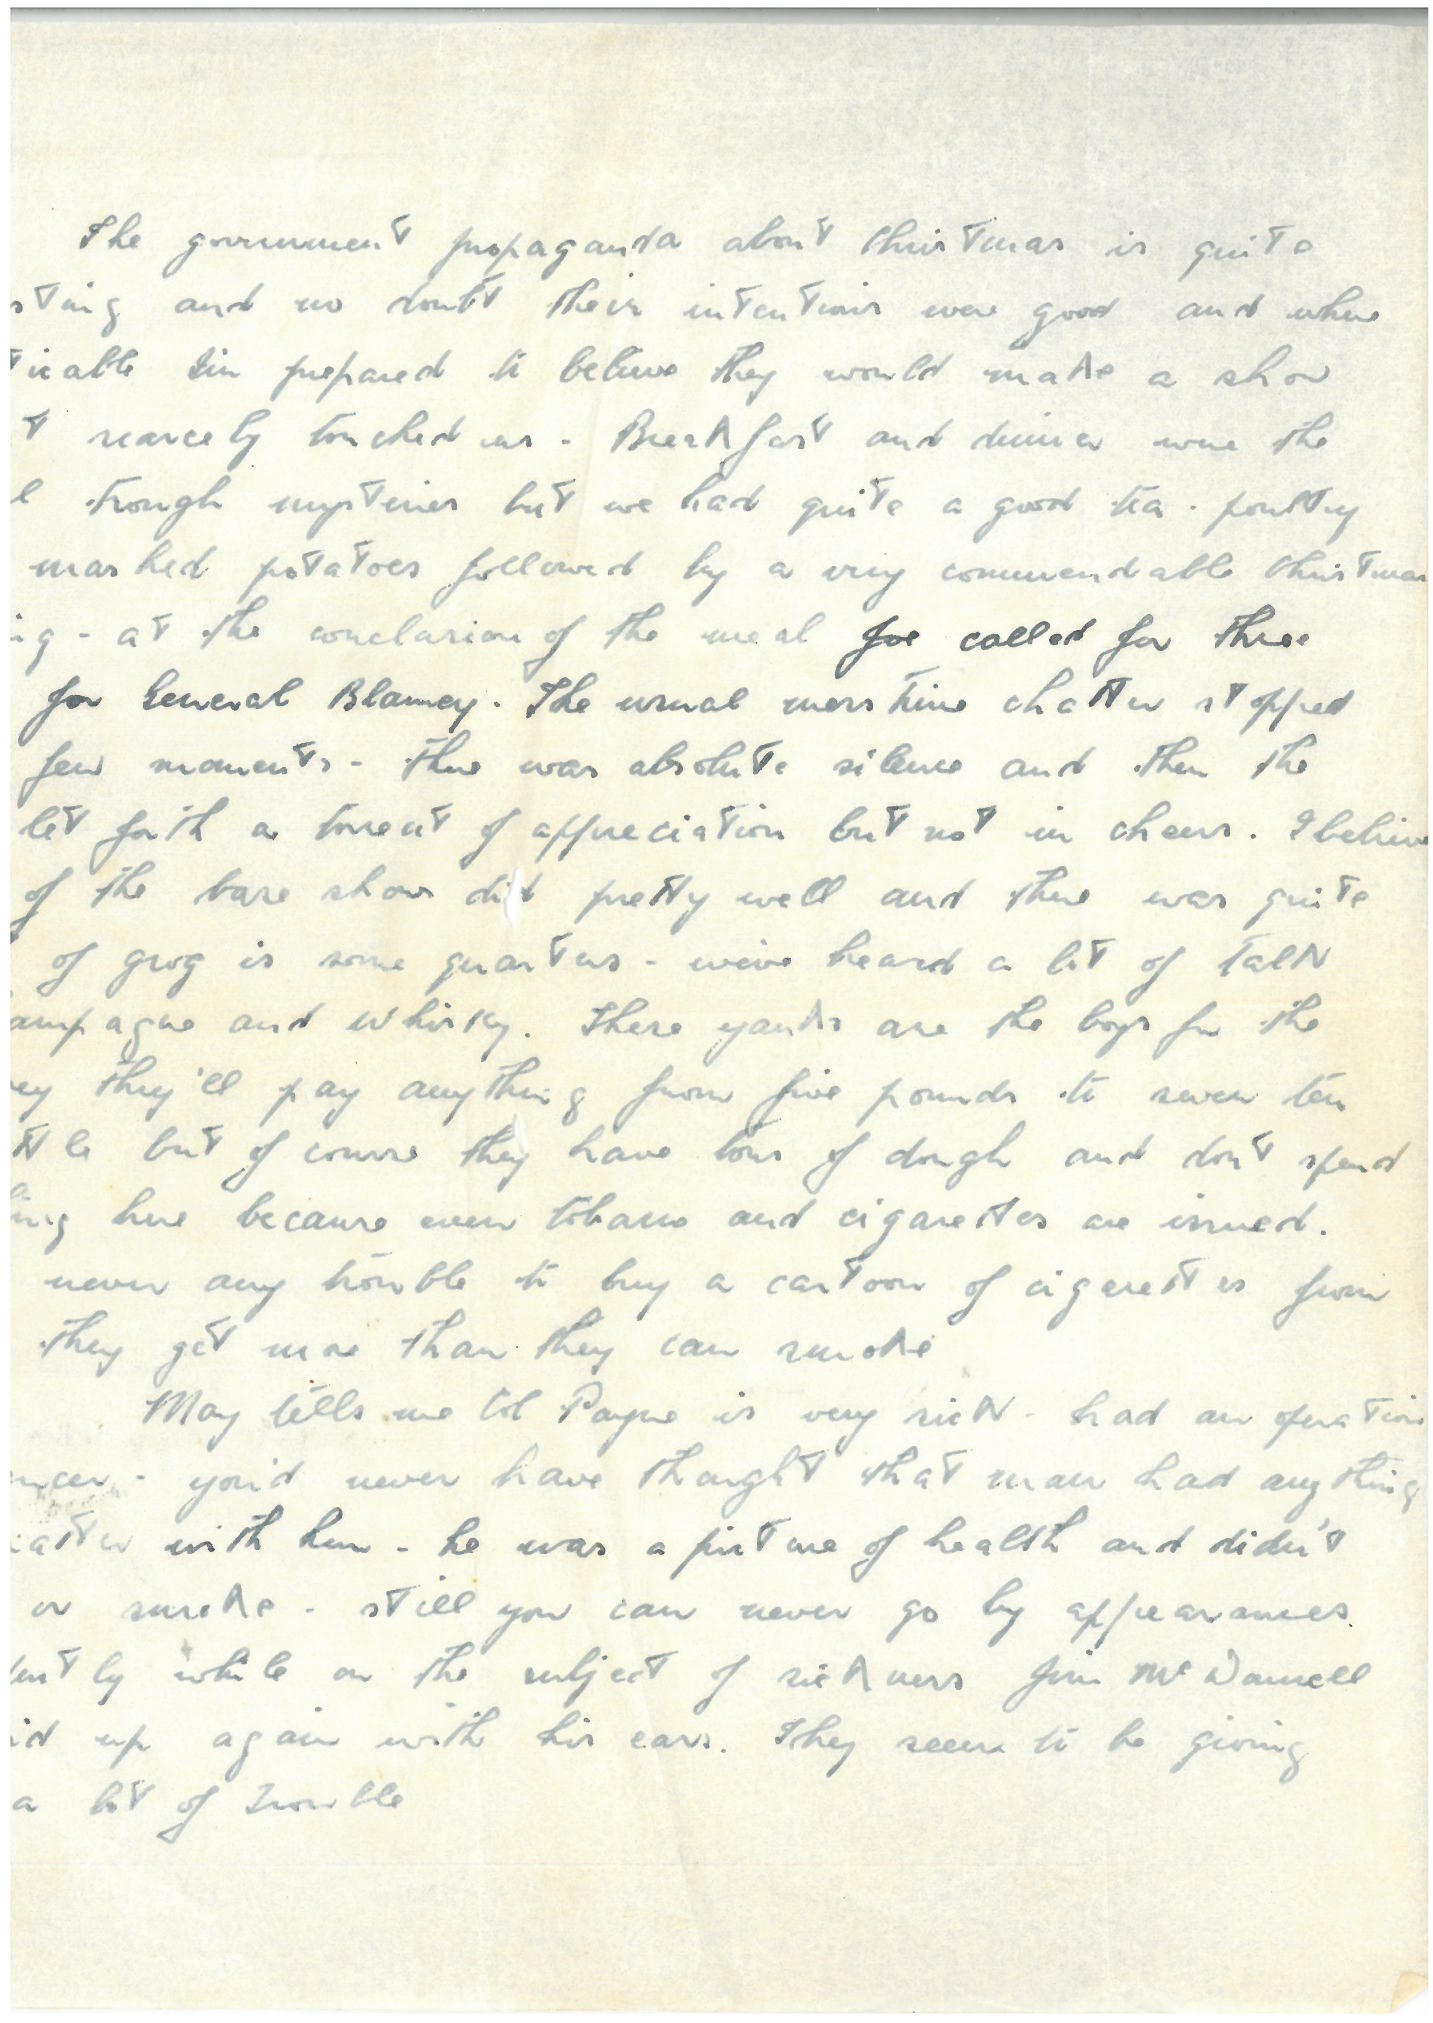 The government propaganda about Christmas is quite
sting and no doubt their intentions were good and where
ticable I'm prepared to believe they would make a show
t scarcely touched us - Breakfast and dinner were the
l trough mysteries but we had quite a good tea - poultry
mashed potatoes followed by a very commendable Christmas
ig - at the conclusion of the meal Joe called for three
for General Blamey. The usual mess time chatter stopped
few moments - there was absolute silence and then the
let forth a torrent of appreciation but not in cheers. I believe
of the base show did pretty well and there was quite
of grog is some quarters - we've heard a lot of talk
ampagne and whisky. These yanks are the boys for the
ey they'll pay anything from five pounds to seven ten
ttle but of course they have tons of dough and don't spend
hing here because even tobacco and cigarettes are issued.
never any trouble to buy a cartoon of cigarettes from
they get more than they can smoke
May tells me Col Payne is very sick - had an operation
ncer - you'd never have thought that man had anything
atter with him - he was a picture of health and didn't
or smoke - still you can never go by appearances.
ntly while on the subject of sickness Jim McDonnell
id up again with his ears. They seem to be giving
a lot of trouble